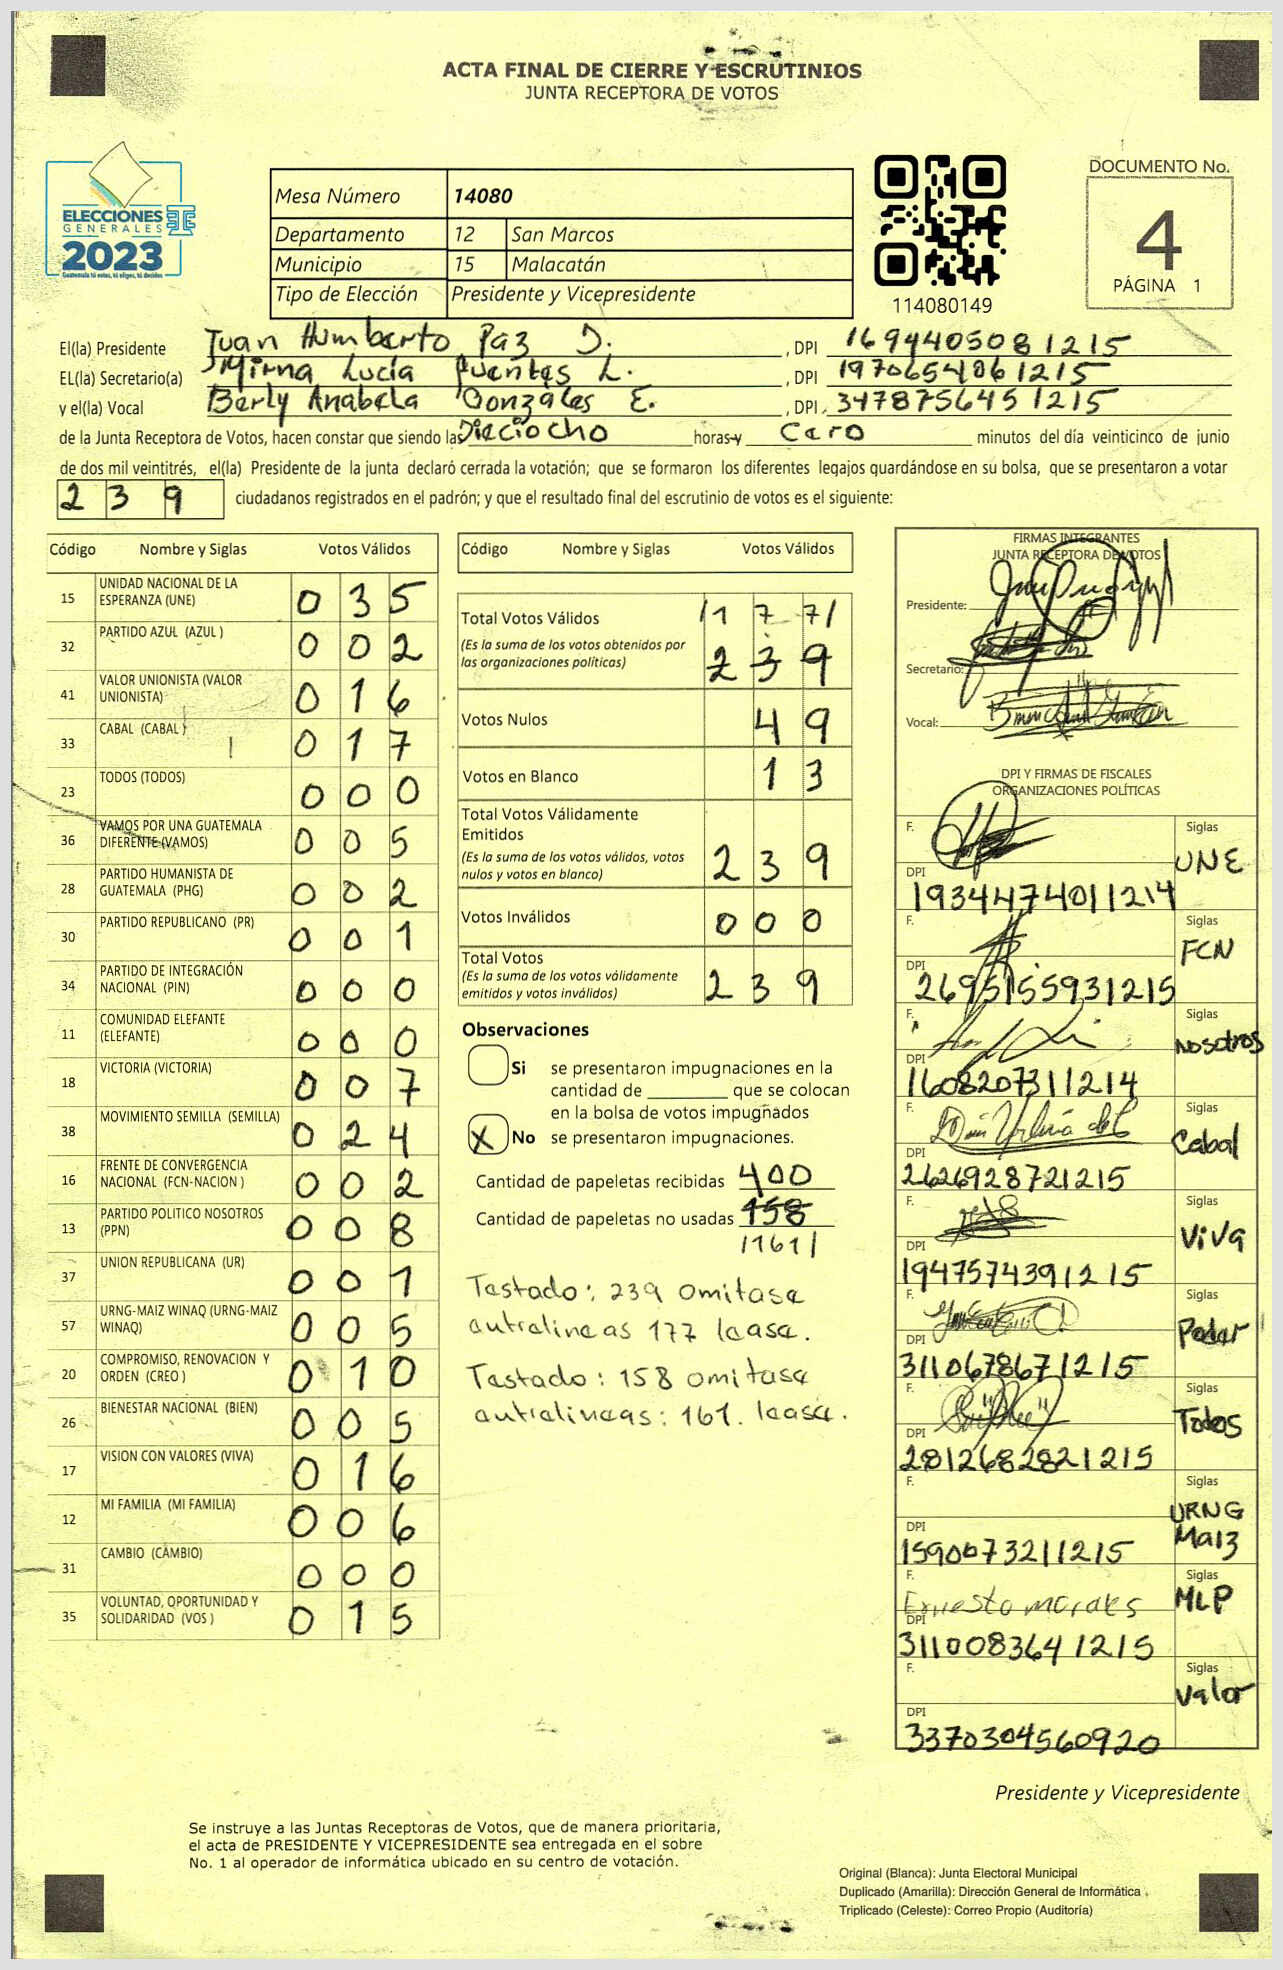 ACTA FINAL DE CIERRE Y ESCRUTINIOS
JUNTA RECEPTORA DE VOTOS
ELECCIONES
GENERALES
2023
Guatemala tú votas, tú eliges, tú decides
Mesa Número 14080
Departamento 12 San Marcos
Municipio 15 Malacatán
Tipo de Elección Presidente y Vicepresidente
114080149
DOCUMENTO No.
4
PÁGINA 1
El(la) Presidente Juan Humberto Paz D. , DPI 1694405081215
EL(la) Secretario(a) Mirna Lucía Fuentes L. , DPI 1970654061215
y el(la) Vocal Berly Anabela Gonzáles E. , DPI 3478756451215
de la Junta Receptora de Votos, hacen constar que siendo las Dieciocho horas y Cero minutos del día veinticinco de junio
de dos mil veintitrés, el(la) Presidente de la junta declaró cerrada la votación; que se formaron los diferentes legajos guardándose en su bolsa, que se presentaron a votar
239 ciudadanos registrados en el padrón; y que el resultado final del escrutinio de votos es el siguiente:
Código Nombre y Siglas Votos Válidos
15 UNIDAD NACIONAL DE LA ESPERANZA (UNE) 035
32 PARTIDO AZUL (AZUL ) 002
41 VALOR UNIONISTA (VALOR UNIONISTA) 016
33 CABAL (CABAL ) 017
23 TODOS (TODOS) 000
36 VAMOS POR UNA GUATEMALA DIFERENTE (VAMOS) 005
28 PARTIDO HUMANISTA DE GUATEMALA (PHG) 002
30 PARTIDO REPUBLICANO (PR) 001
34 PARTIDO DE INTEGRACIÓN NACIONAL (PIN) 000
11 COMUNIDAD ELEFANTE (ELEFANTE) 000
18 VICTORIA (VICTORIA) 007
38 MOVIMIENTO SEMILLA (SEMILLA) 024
16 FRENTE DE CONVERGENCIA NACIONAL (FCN-NACION ) 002
13 PARTIDO POLITICO NOSOTROS (PPN) 008
37 UNION REPUBLICANA (UR) 001
57 URNG-MAIZ WINAQ (URNG-MAIZ WINAQ) 005
20 COMPROMISO, RENOVACION Y ORDEN (CREO ) 010
26 BIENESTAR NACIONAL (BIEN) 005
17 VISION CON VALORES (VIVA) 016
12 MI FAMILIA (MI FAMILIA) 006
31 CAMBIO (CAMBIO) 000
35 VOLUNTAD, OPORTUNIDAD Y SOLIDARIDAD (VOS ) 015
Código Nombre y Siglas Votos Válidos
Total Votos Válidos /177/
(Es la suma de los votos obtenidos por las organizaciones políticas) 239
Votos Nulos 49
Votos en Blanco 13
Total Votos Válidamente Emitidos
(Es la suma de los votos válidos, votos nulos y votos en blanco) 239
Votos Inválidos 000
Total Votos
(Es la suma de los votos válidamente emitidos y votos inválidos) 239
Observaciones
Si se presentaron impugnaciones en la
cantidad de ________ que se colocan
en la bolsa de votos impugnados
X No se presentaron impugnaciones.
Cantidad de papeletas recibidas 400
Cantidad de papeletas no usadas 158
/161/
Testado: 239 omitase
entrelineas 177 lease.
Testado: 158 omitase
entrelineas: 161. lease.
FIRMAS INTEGRANTES
JUNTA RECEPTORA DE VOTOS
Presidente:
Secretario:
Vocal:
DPI Y FIRMAS DE FISCALES
ORGANIZACIONES POLÍTICAS
F. Siglas UNE
DPI 1934474011214
F. Siglas FCN
DPI 2695155931215
F. Siglas Nosotros
DPI 1608207311214
F. Siglas Cabal
DPI 2626928721215
F. Siglas ViVa
DPI 1947574391215
F. Siglas Poder
DPI 3110678671215
F. Siglas Todos
DPI 2812682821215
F. Siglas URNG Maiz
DPI 1590073211215
F. Ernesto morales Siglas MLP
DPI 3110083641215
F. Siglas Valor
DPI 3370304560920
Presidente y Vicepresidente
Se instruye a las Juntas Receptoras de Votos, que de manera prioritaria,
el acta de PRESIDENTE Y VICEPRESIDENTE sea entregada en el sobre
No. 1 al operador de informática ubicado en su centro de votación.
Original (Blanca): Junta Electoral Municipal
Duplicado (Amarilla): Dirección General de Informática
Triplicado (Celeste): Correo Propio (Auditoría)